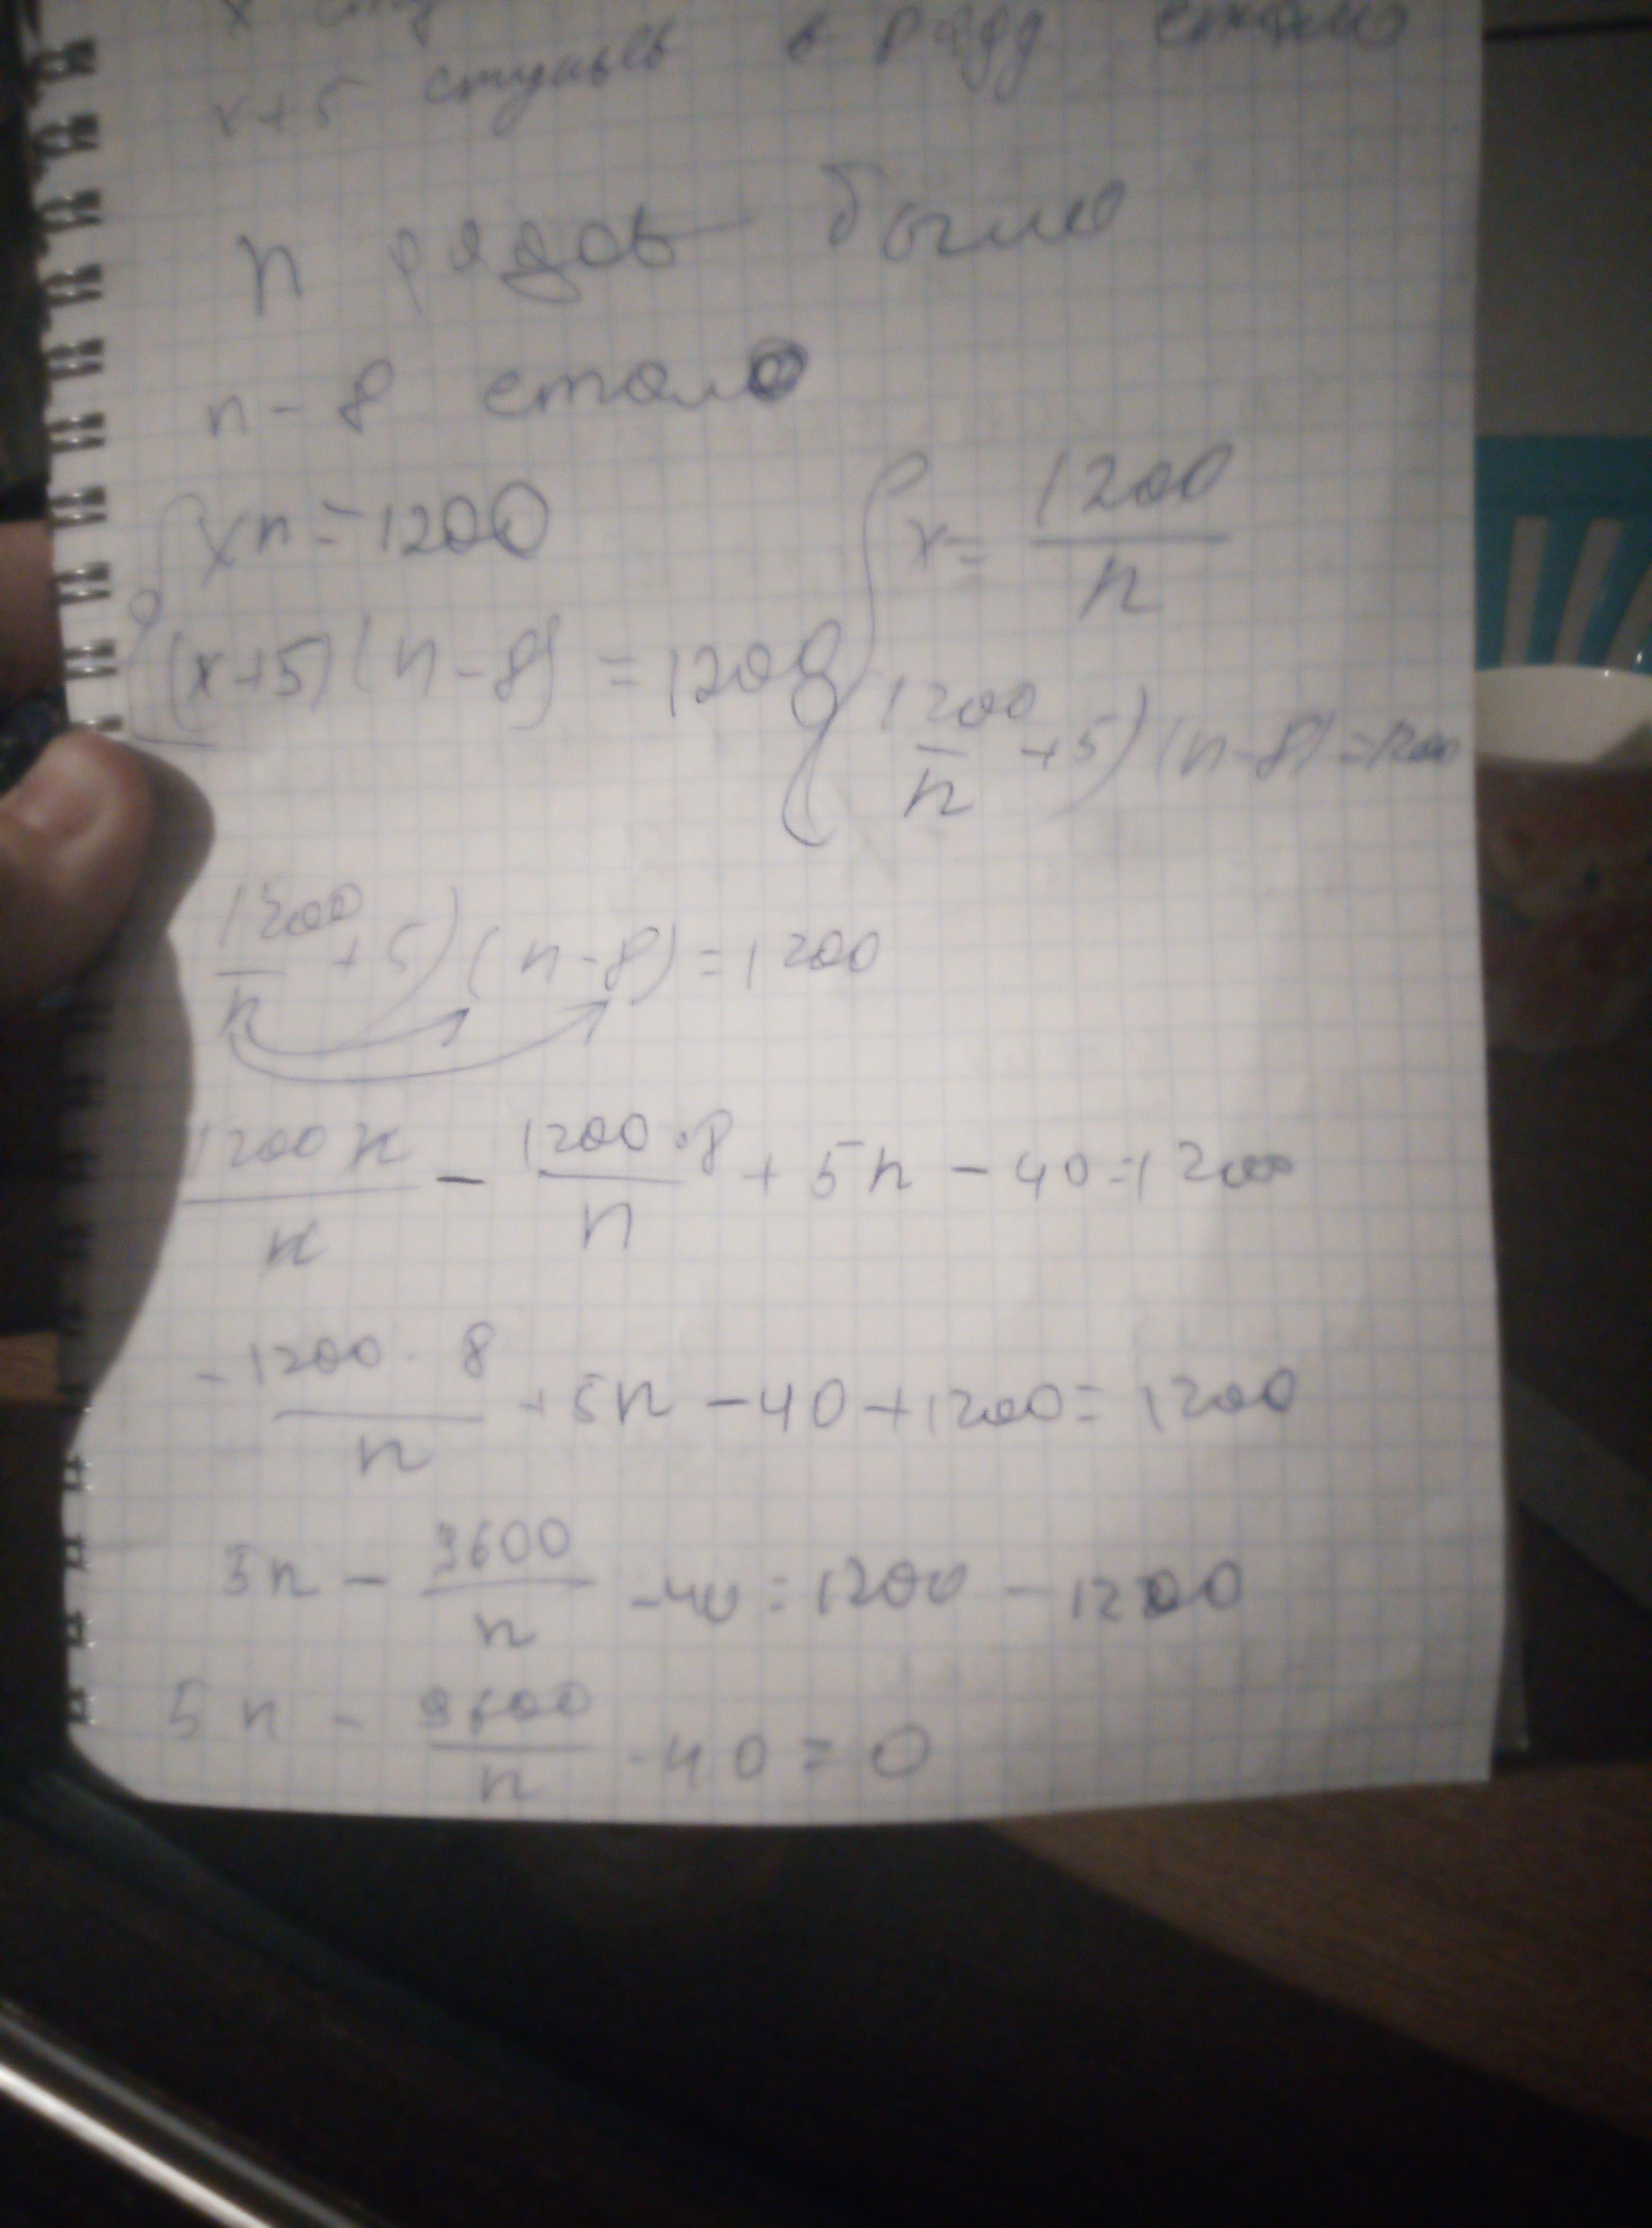 x
x+5 стульев в ряду стало
n рядов было
n-8 стало
xn=1200
(x+5)(n-8)=1200
x=1200/n
1200/n+5)(n-8)=1200
1200/n+5)(n-8)=1200
1200n/n - 1200·8/n + 5n - 40=1200
-1200·8/n + 5n - 40 + 1200 = 1200
5n - 9600/n - 40 = 1200 - 1200
5n - 9600/n - 40 = 0